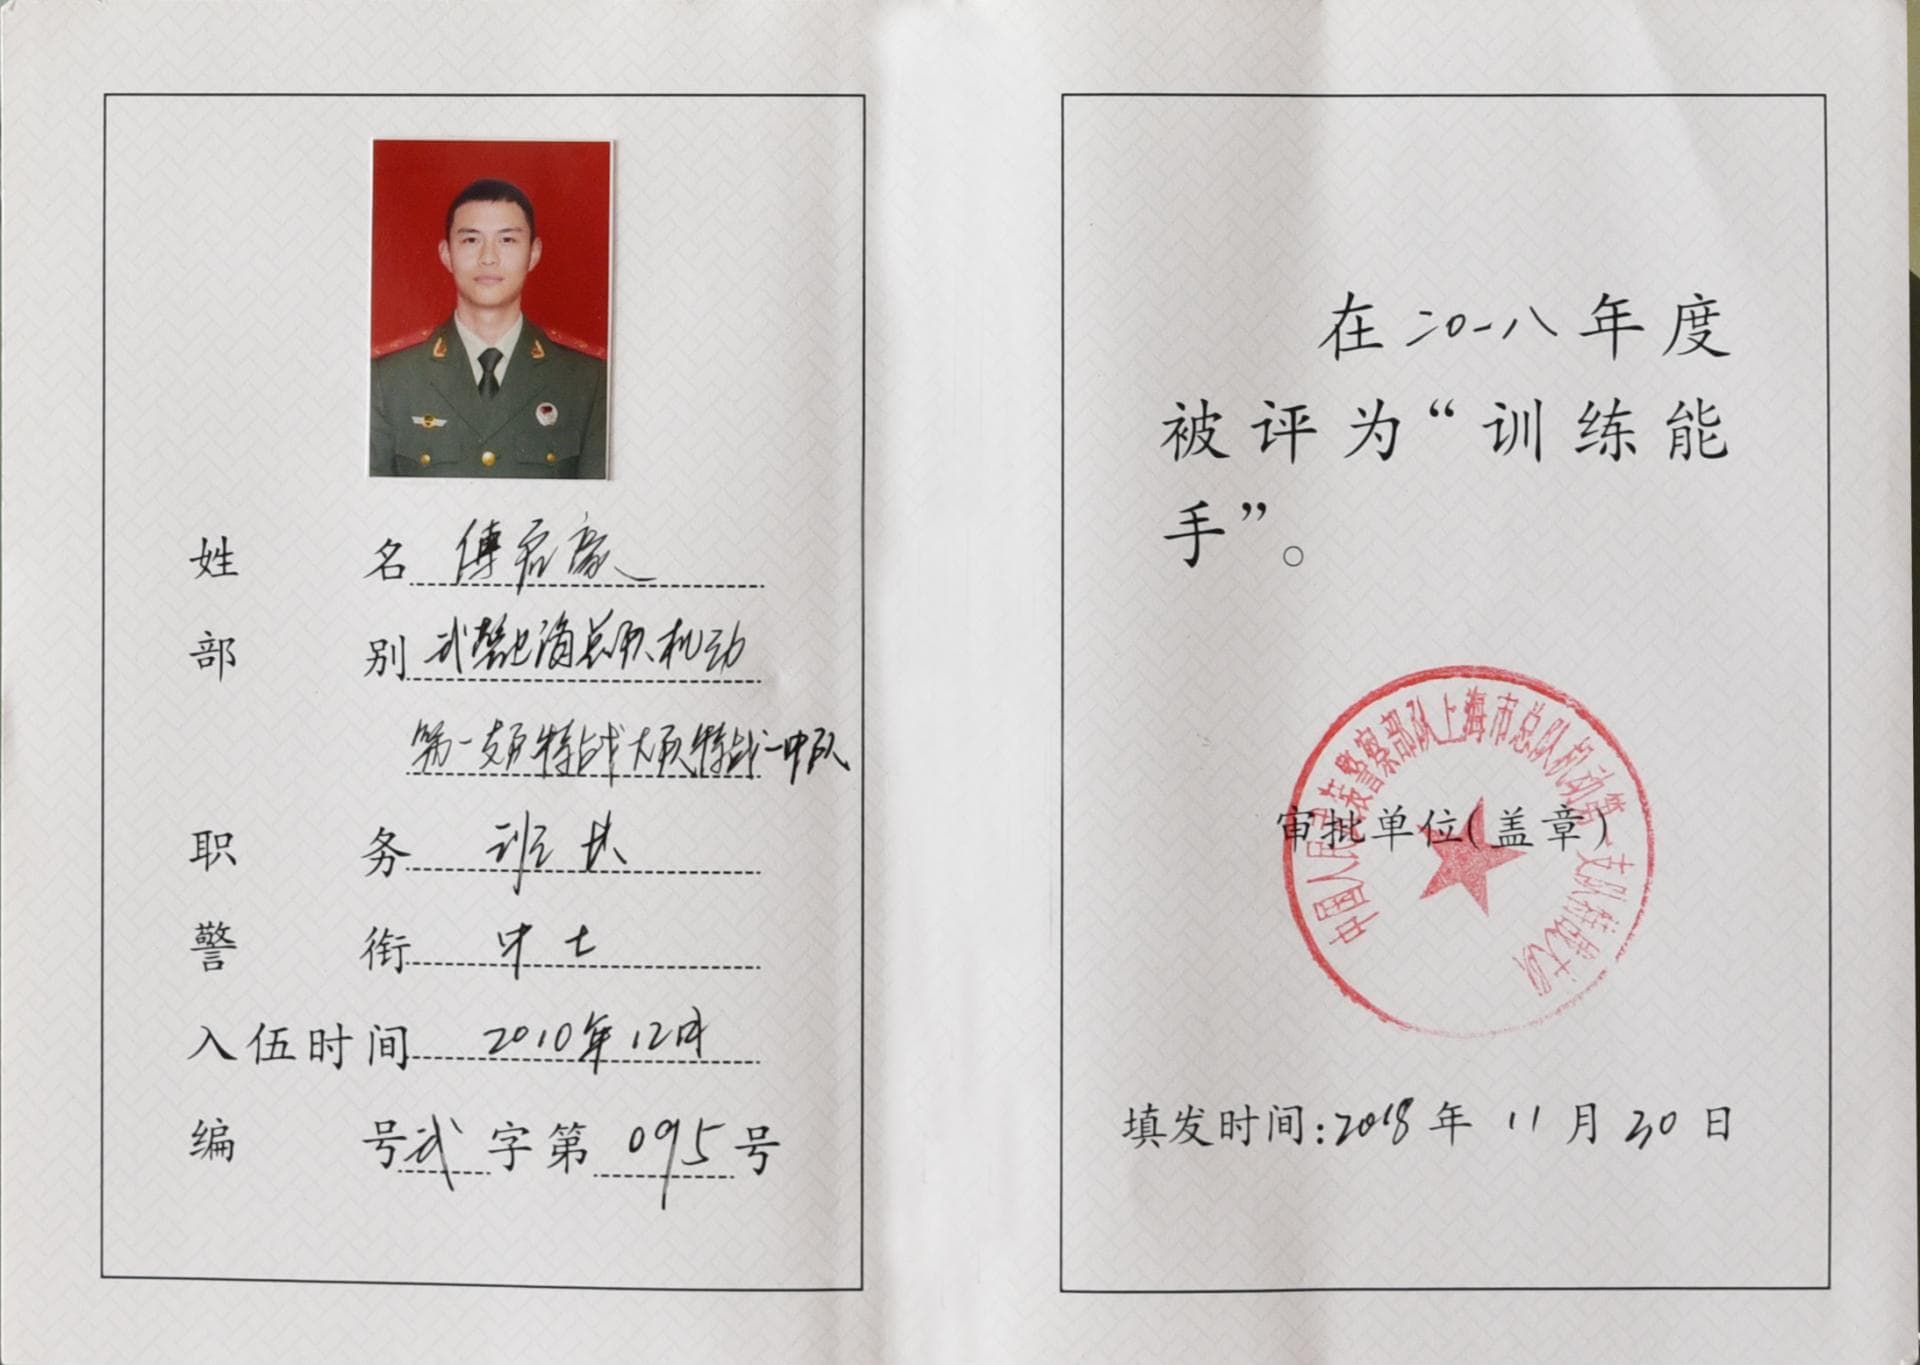 姓名 傅君豪
部别 武警上海总队机动
第一支队特战大队特战一中队
职务 班长
警衔 中士
入伍时间 2010年12月
编号 武字第 095号
在二〇一八年度
被评为“训练能
手”。
中国人民武装警察部队上海市总队机动第一支队特战大队
审批单位(盖章)
填发时间:2018年11月30日